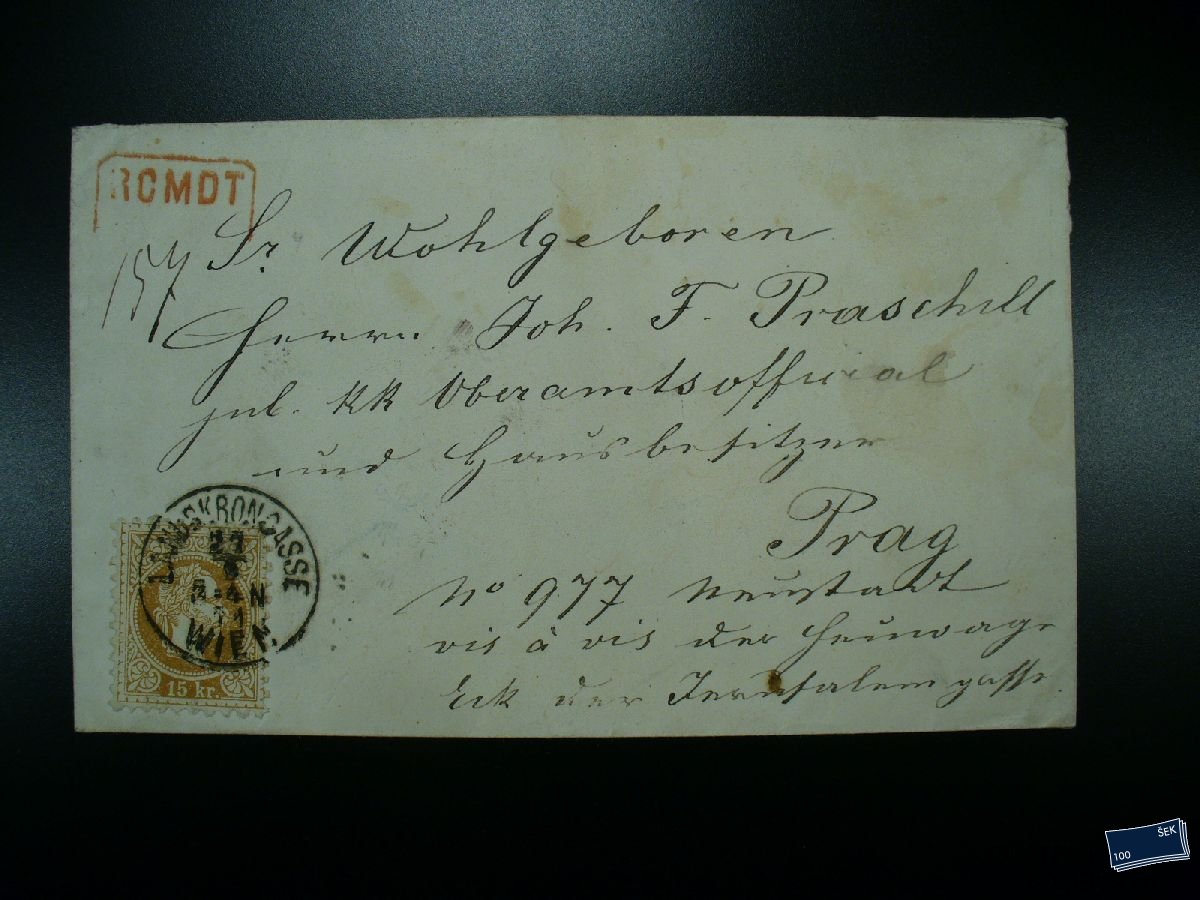 RCMDT
157
Sr Wohlgeboren
Herrn Joh. F. Praschill
pnl. KK Oberamtsofficial
und Hausbesitzer
Prag
No 977 Neustadt
vis à vis der Heuwage
Eck der Jerusalemgasse
LANDSKRONGASSE
3-4 N
71
WIEN
15 kr.
ŠEK
100